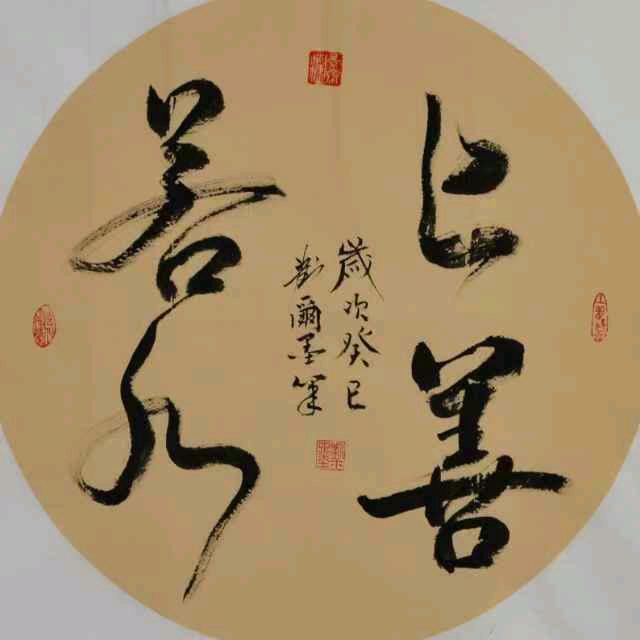 上善
若水
歲次癸巳
劉爾墨筆